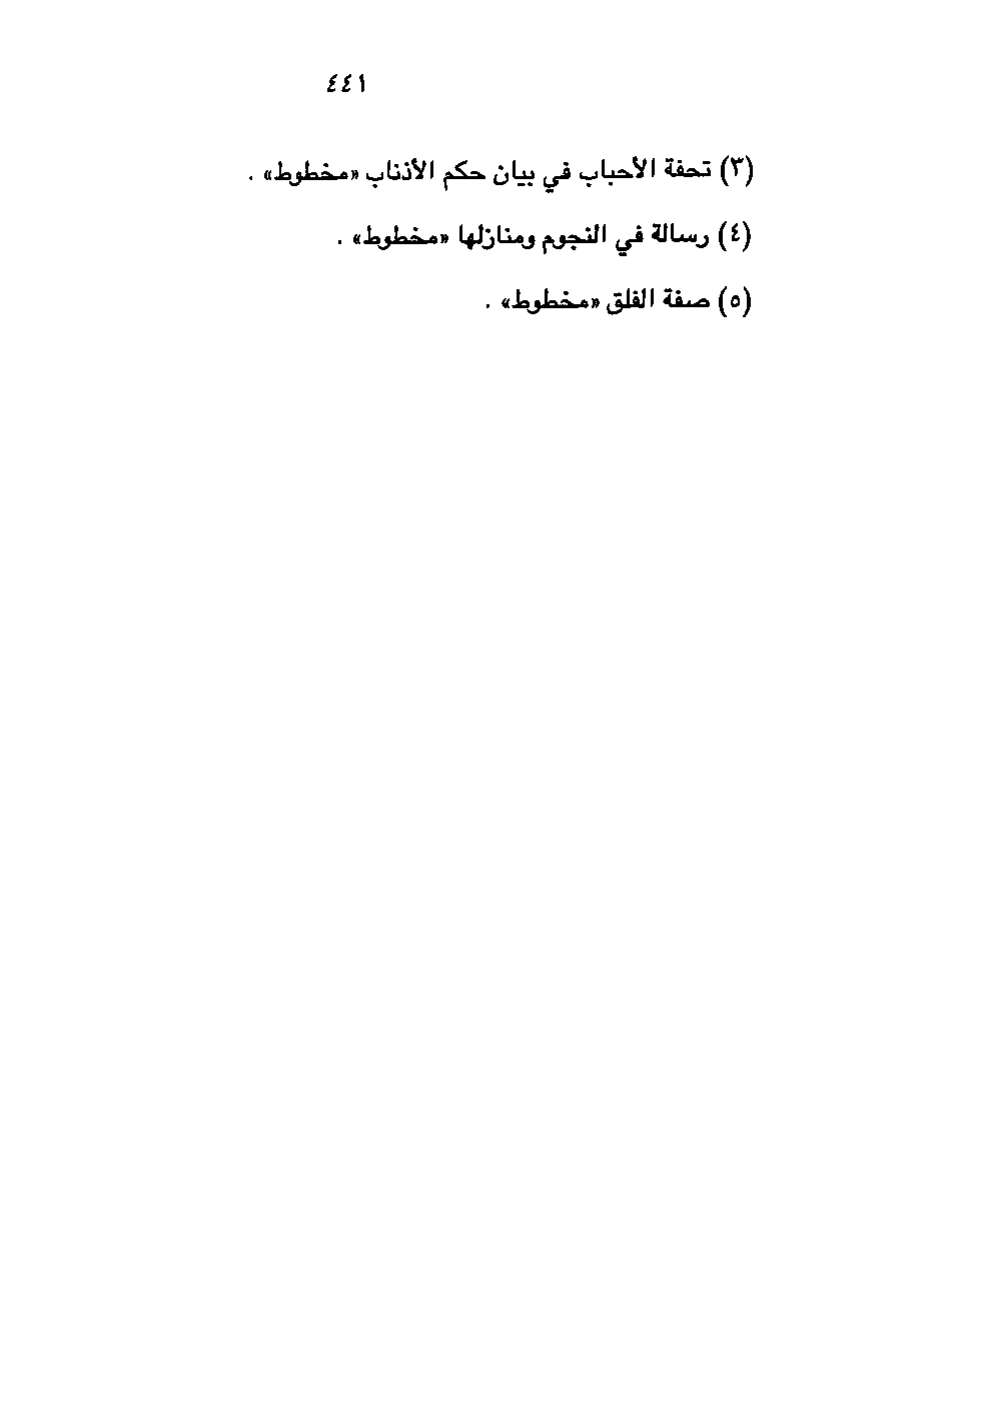 ٤٤١
(٣) تحفة الأحباب في بيان حكم الأذناب «مخطوط» .
(٤) رسالة في النجوم ومنازلها «مخطوط» .
(٥) صفة الفلق «مخطوط» .